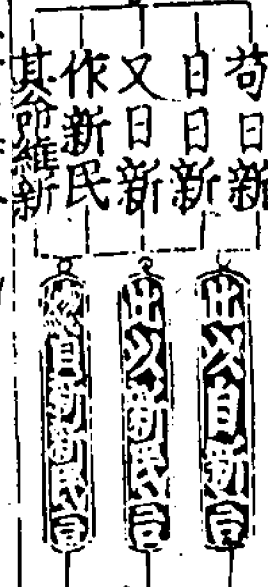 苟日新
日日新
又日新
作新民
其命維新
此以自新言
此以新民言
總自新新民言